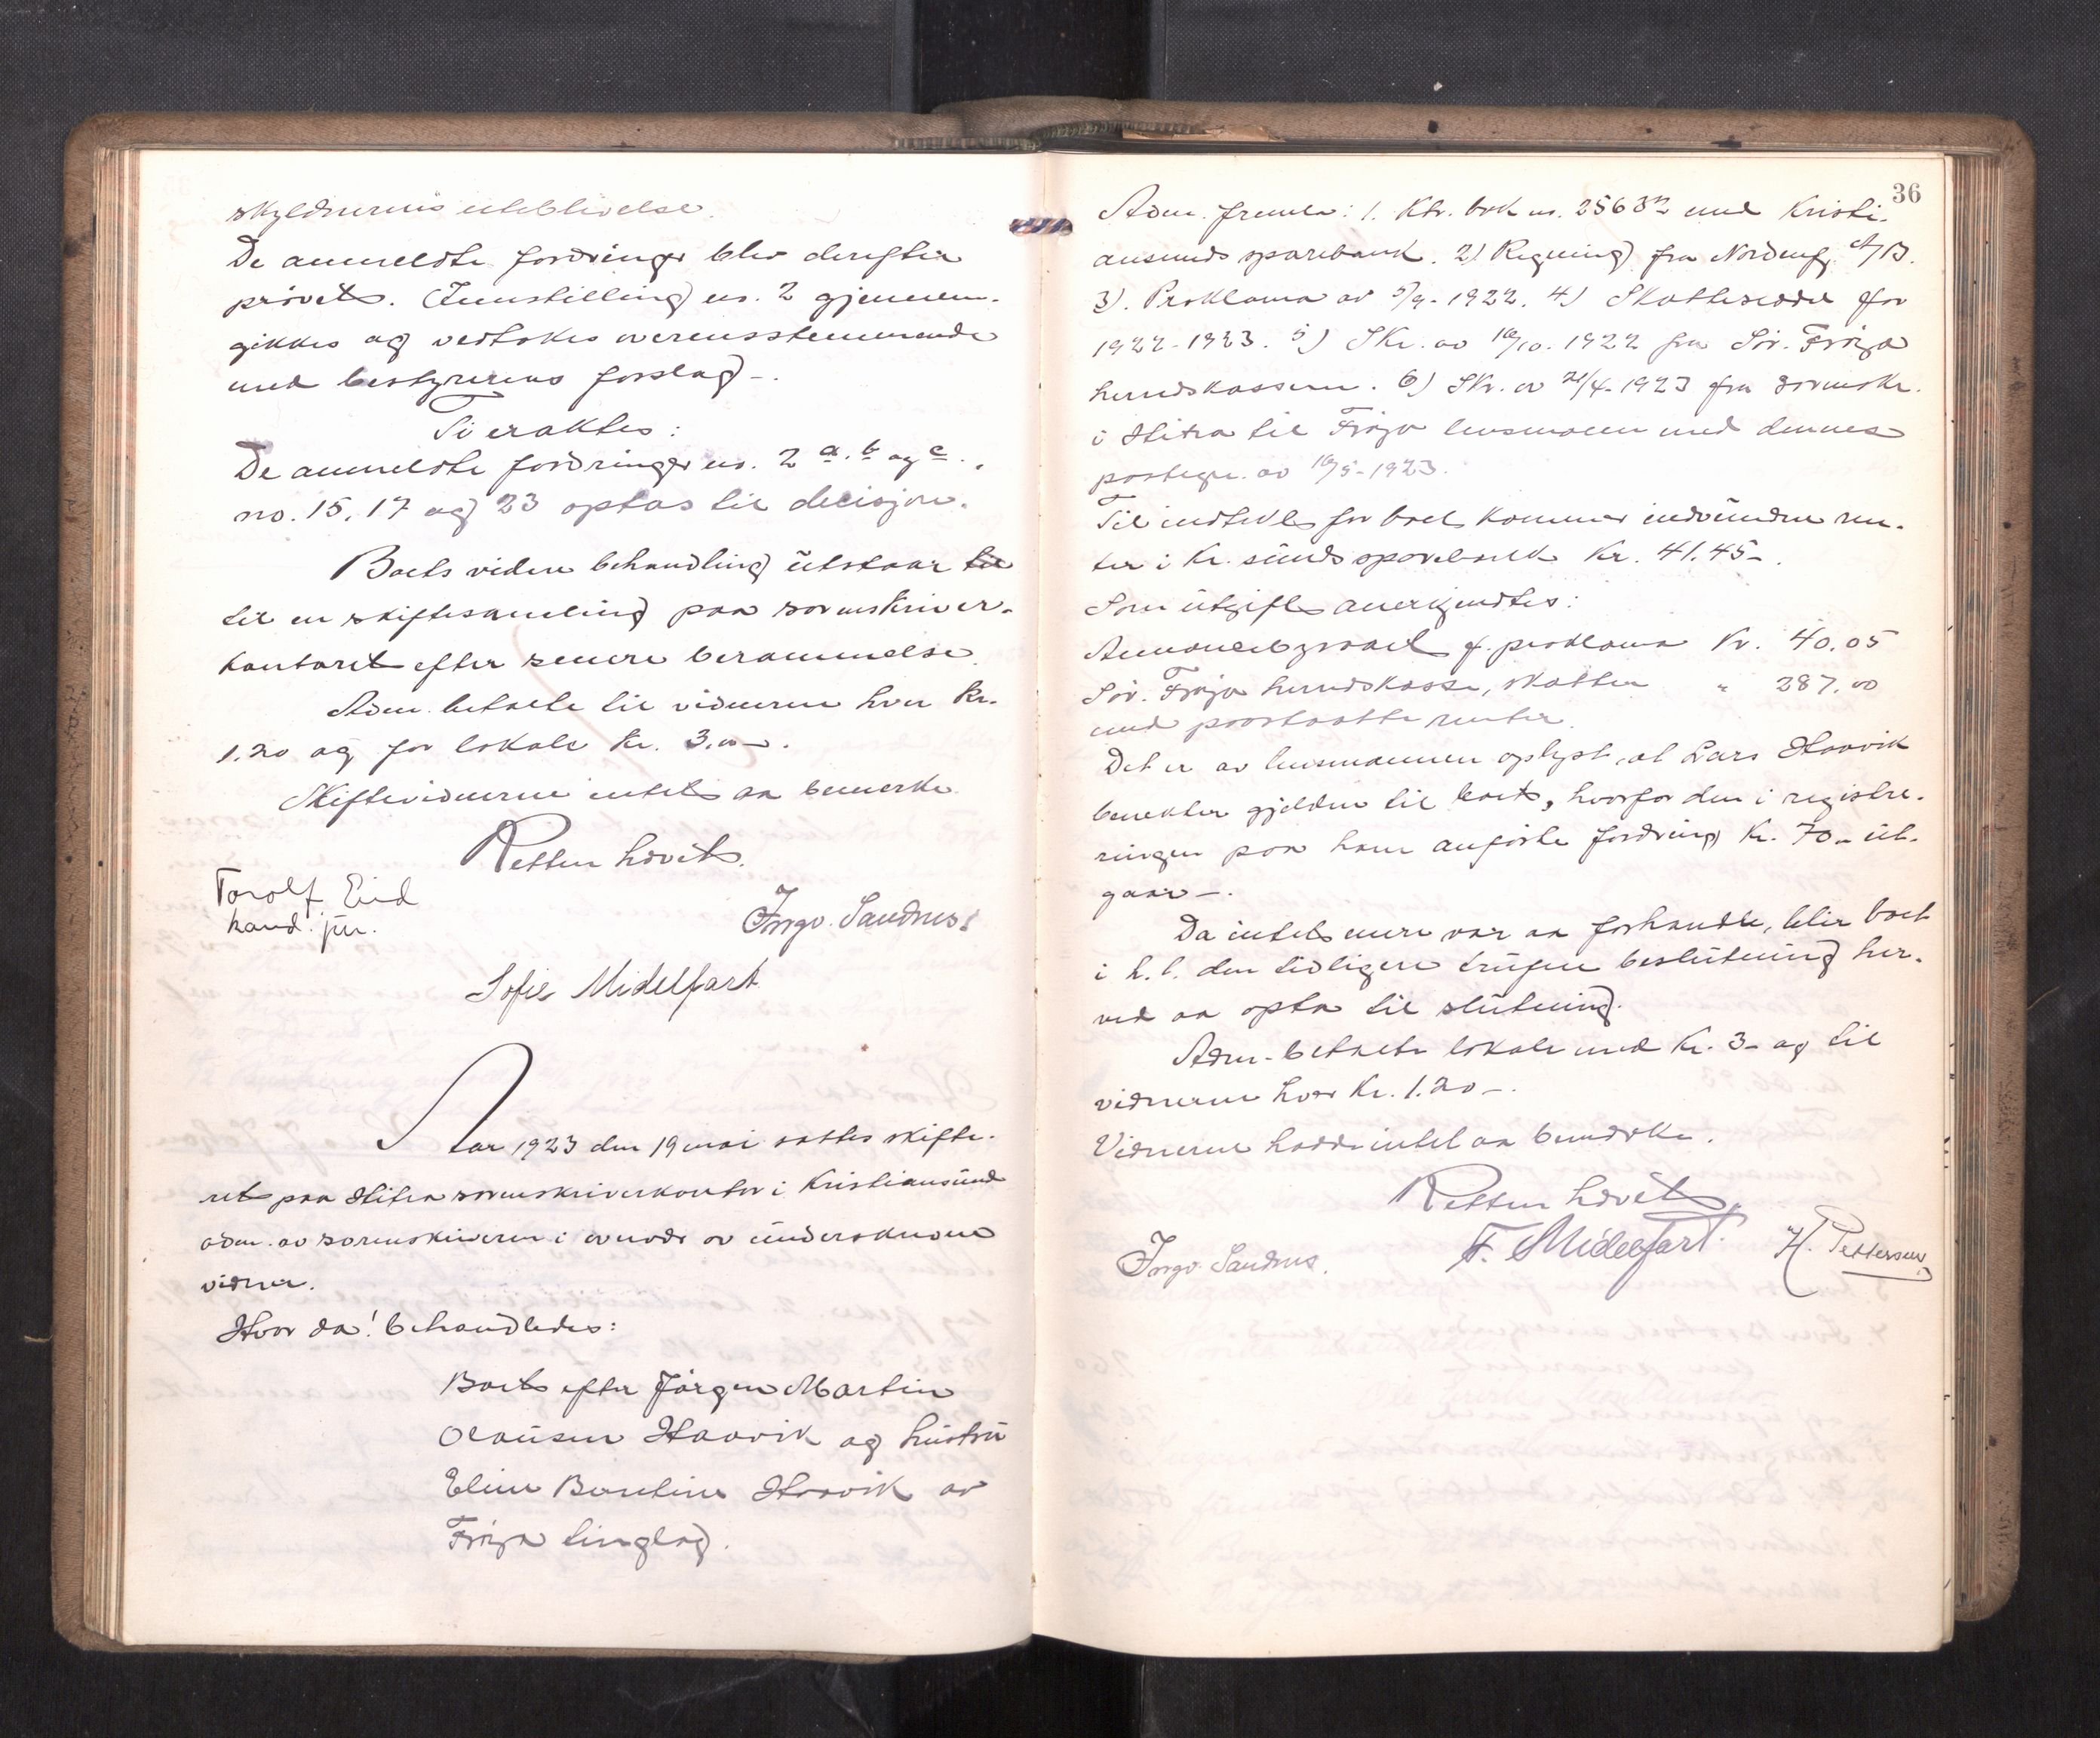 skyldnerens uteblivelse.
De anmeldte fordringer blev derefter
prövet. Innstilling ns. 2 gjennem-
gikkes og vedtokes overensstemmende
med bestyrerens forslag -.
Ti eraktes:
De anmeldte fordringer ns. 2 a. b og c.,
no. 15, 17 og 23 optas til decisjon.
Boets videre behandling utstaar til
til en skiftesamling paa sorenskriver-
kontoret efter senere berammelse.
Adm. betalte til vidnerne hver kr.
1.20 og for lokale kr. 3.00 -.
Skiftevidnerne intet aa bemerke.
Retten hævet.
Torolf Eid
kand. jur.
Ingv. Sandnes
Sofie Midelfart
Aar 1923 den 19 mai sattes skifte-
ret paa Hitra sorenskriverkontor i Kristiansund
adm. av sorenskriveren i overvær av underskrevne
vidner.
Hvor da! behandledes:
Boet efter Jörgen Martin
Olausen Haavik og hustru
Eline Berntine Haavik av
Fröya tinglag.
36
Adm. fremla: 1. Ktr. bok ns. 2563 med Kristi-
ansunds sparebank. 2) Regning fra Nordenf. A/B.
3). Proklama av 5/9-1922. 4) Skatteseddel for
1922-1923. 5) Skr. av 10.1922 fra Sör-Fröya
herredskassen. 6) Skr. av 21/4-1923 fra sorenskr.
i Hitra til Fröya lensmann med dennes
paategn. av 16/5-1923.
Til indtekt for boet kommer indvundne ren-
ter i Kr.sunds sparebank kr. 41.45 -.
Som utgift anerkjendtes:
Annonceutgraael f. proklama Kr. 40.05
Sör-Fröya herredskasse, skatter " 287.00
med paastaatte renter.
Det er av lensmannen oplyst, at Lars Haavik
benekter gjelden til boet, hvorfor den i registre-
ringen paa ham anförte fordring Kr. 70.- ut-
gaar -.
Da intet mere var aa forhandle, blir boet
i h. t. den tidligere trufne beslutning her-
ved aa opta til slutning.
Adm. betalte lokale med Kr. 3- og til
vidnerne hver Kr. 1.20 -.
Vidnerne hadde intet aa bemerke.
Retten hævet.
Ingv. Sandnes.
F. Midelfart.
H. Pettersen